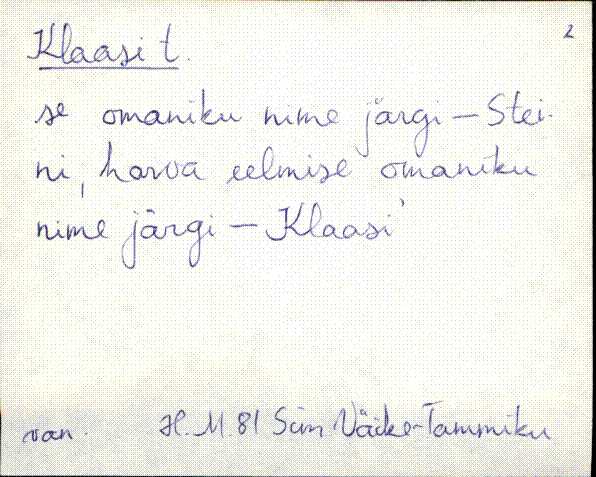 2
Klaasi t.
se omaniku nime järgi – Stei-
ni, harva eelmise omaniku
nime järgi – Klaasi'
van. H. M. 81 Siim Väike-Tammiku